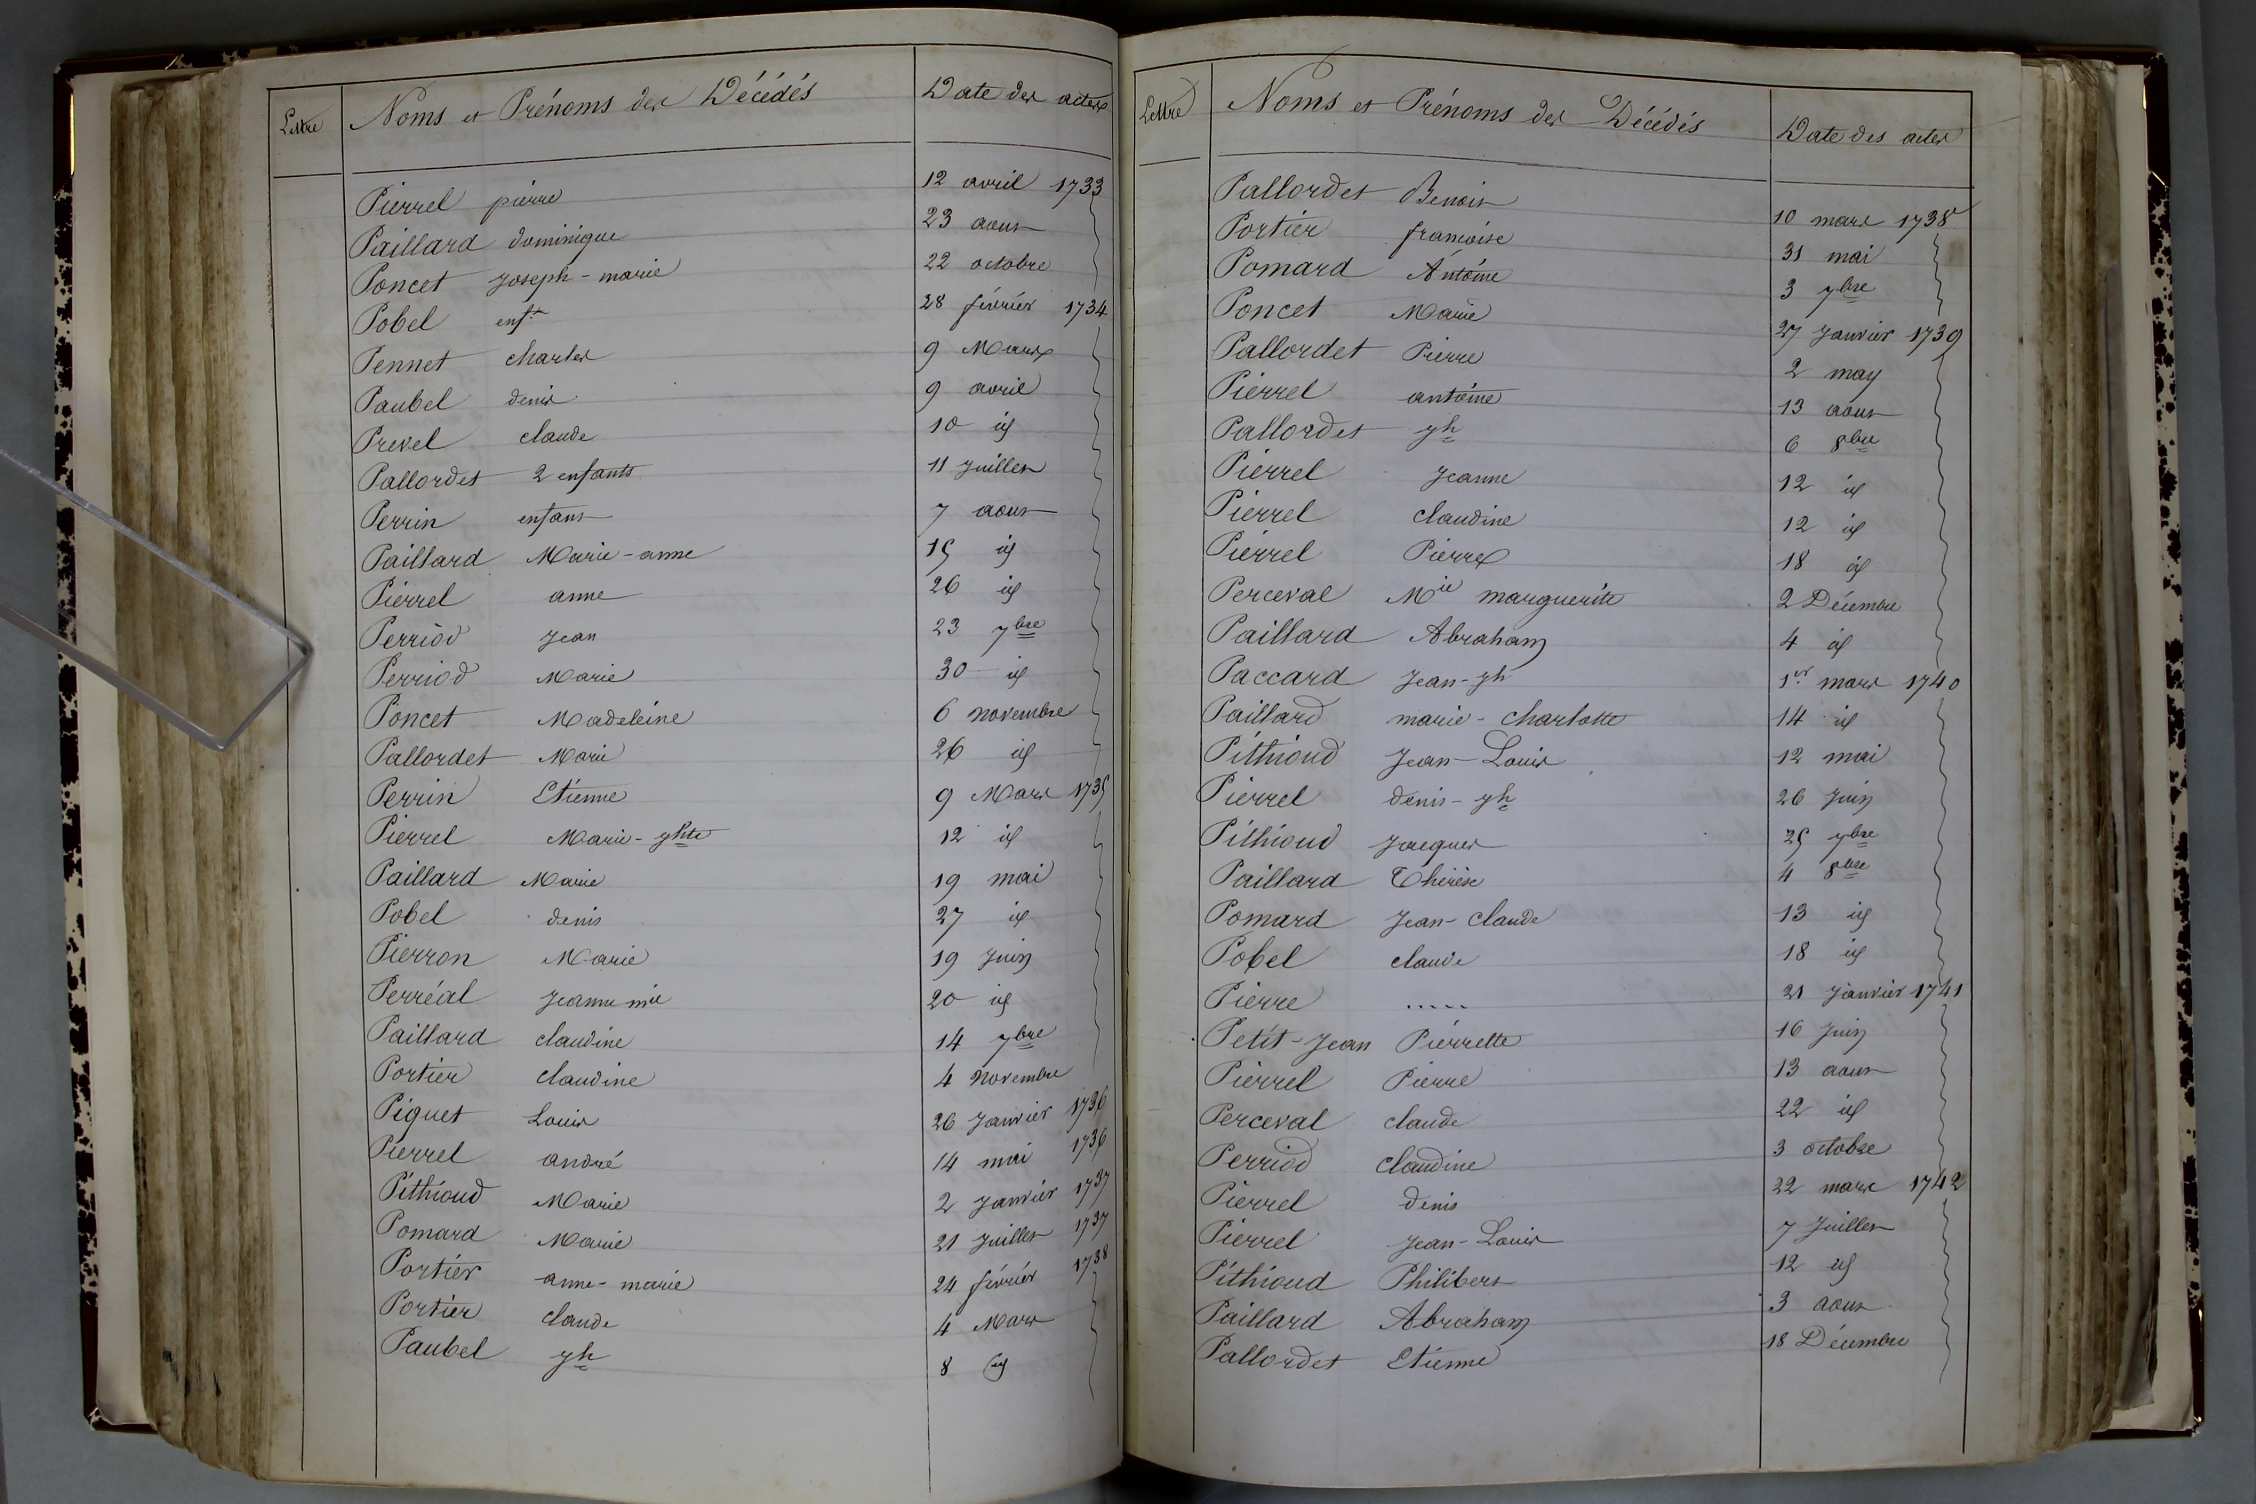 Lettre Noms et Prénoms des Décédés Date des actes
Pierrel pierre 12 avril 1733
Paillard dominique 23 aout
Poncet Joseph-marie 22 octobre
Pobel enft 28 février 1734
Pennet charles 9 Mars
Paubel denis 9 avril
Prevel claude 10 id
Pallordet 2 enfants 11 Juillet
Perrin enfant 7 aout
Paillard Marie-anne 15 id
Pierrel anne 26 id
Perriod Jean 23 7bre
Perriod Marie 30 id
Poncet Madeleine 6 novembre
Pallordet Marie 26 id
Perrin Etienne 9 Mars 1735
Pierrel Marie-jhte 12 id
Paillard Marie 19 mai
Pobel denis 27 id
Pierron Marie 19 Juin
Perréal Jeanne mie 20 id
Paillard claudine 14 7bre
Portier claudine 4 novembre
Piquet Louis 26 Janvier 1736
Pierrel andré 14 mai 1736
Pithioud Marie 2 Janvier 1737
Pomard Marie 21 Juillet 1737
Portier anne-marie 24 février 1738
Portier claude 4 Mars
Paubel jh 8 id
Lettre Noms et Prénoms des Décédés Date des actes
Pallordet Benoit 10 mars 1738
Portier francoise 31 mai
Pomard Antoine 3 7bre
Poncet Marie 27 Janvier 1739
Pallordet Pierre 2 may
Pierrel antoine 13 aout
Pallordet jh 6 8bre
Pierrel Jeanne 12 id
Pierrel claudine 12 id
Pierrel Pierre 18 id
Perceval Mie marguerite 2 Décembre
Paillard Abraham 4 id
Paccard Jean-jh 1er mars 1740
Paillard marie-charlotte 14 id
Pithioud Jean-Louis 12 mai
Pierrel denis-jh 26 Juin
Pithioud Jacques 25 7bre
Paillard Thérèse 4 8bre
Pomard Jean-claude 13 id
Pobel claude 18 id
Pierre ..... 21 Janvier 1741
Petit-Jean Pierrette 16 Juin
Pierrel Pierre 13 aout
Perceval claude 22 id
Perriod claudine 3 octobre
Pierrel denis 22 mars 1742
Pierrel Jean-Louis 7 Juillet
Pithioud Philibert 12 id
Paillard Abraham 3 aout
Pallordet Etienne 18 Décembre